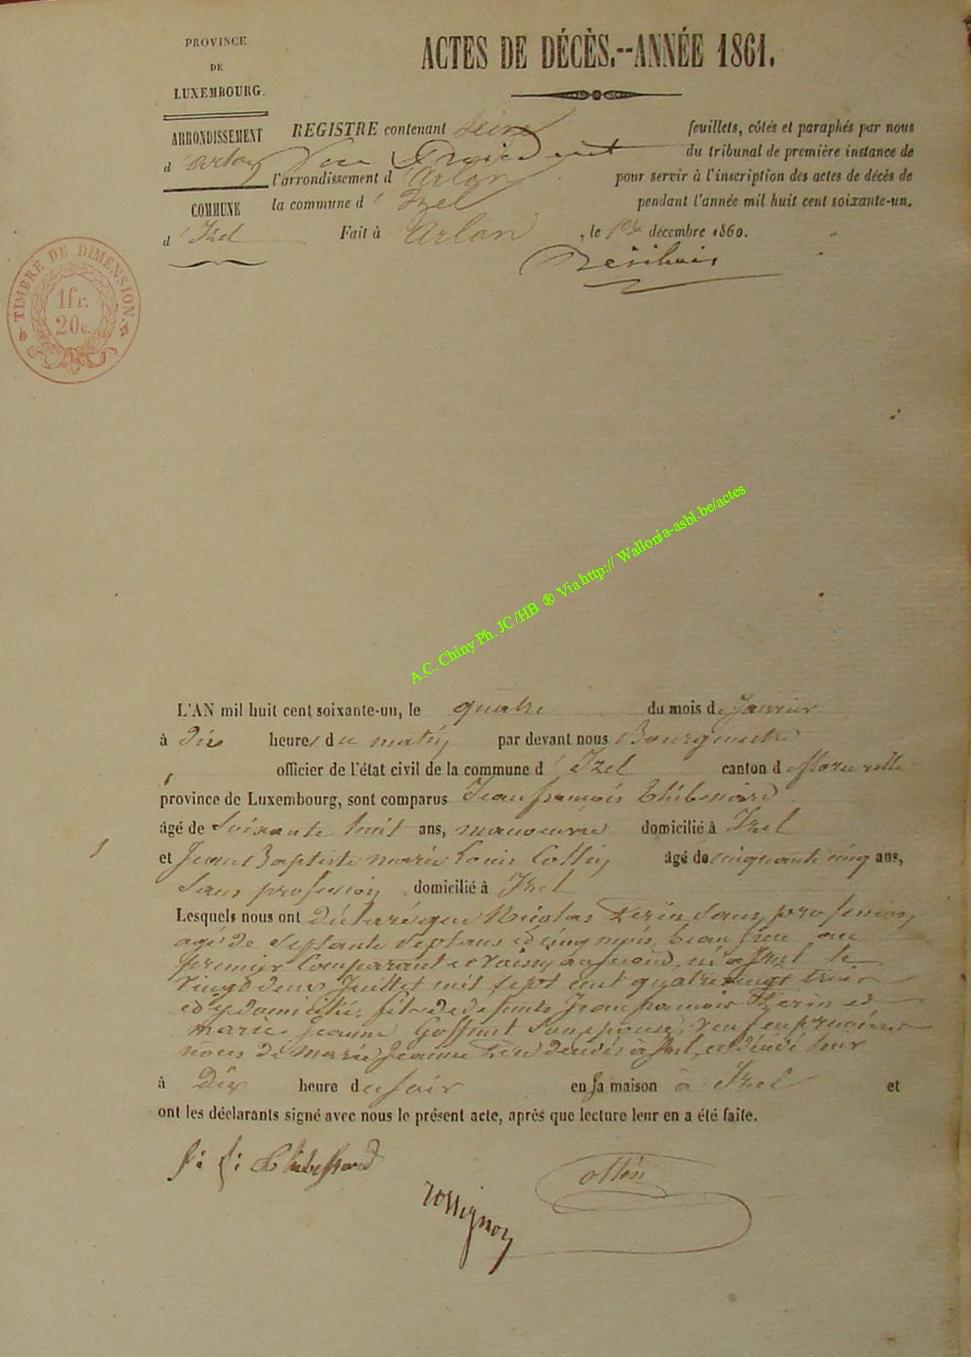 PROVINCE
DE
LUXEMBOURG.
ACTES DE DÉCÈS.--ANNÉE 1861.
ARRONDISSEMENT
d'Arlon
COMMUNE
d'Izel
REGISTRE contenant feuillets, côtés et paraphés par nous
Vice Président du tribunal de première instance de
l'arrondissement d'Arlon pour servir à l'inscription des actes de décès de
la commune d'Izel pendant l'année mil huit cent soixante-un.
Fait à Arlon, le 1er décembre 1860.
TIMBRE DE DIMENSION.
1fr.
20c.
A.C. Chiny Ph. JC/HB ® Via http:// Wallonia-asbl.be/actes
L'AN mil huit cent soixante-un, le quatre du mois de Janvier
à Dix heures du matin par devant nous Bourgmestre
officier de l'état civil de la commune d'Izel canton de
province de Luxembourg, sont comparus Jean françois Thibessard
âgé de Soixante huit ans, manoeuvre domicilié à Izel
1
et Jean Baptiste marie Louis Collin âgé de cinquante cinq ans,
Sans profession domicilié à Izel
Lesquels nous ont Déclaré que Nicolas sans profession
agé de Septante Sept ans et cinq mois, beau frère au
premier Comparant et voisin au second, né à Izel le
vingt deux Juillet mil sept cent quatre vingt trois
et y domicilié, fils de défunts Jean françois et
marie Jeanne Goffinet
noces de marie Jeanne décédée à Izel, est décédé hier
à Dix heure du soir en sa maison à Izel et
ont les déclarants signé avec nous le présent acte, après que lecture leur en a été faite.
j: f: Thibessard
Collin
Rossignon